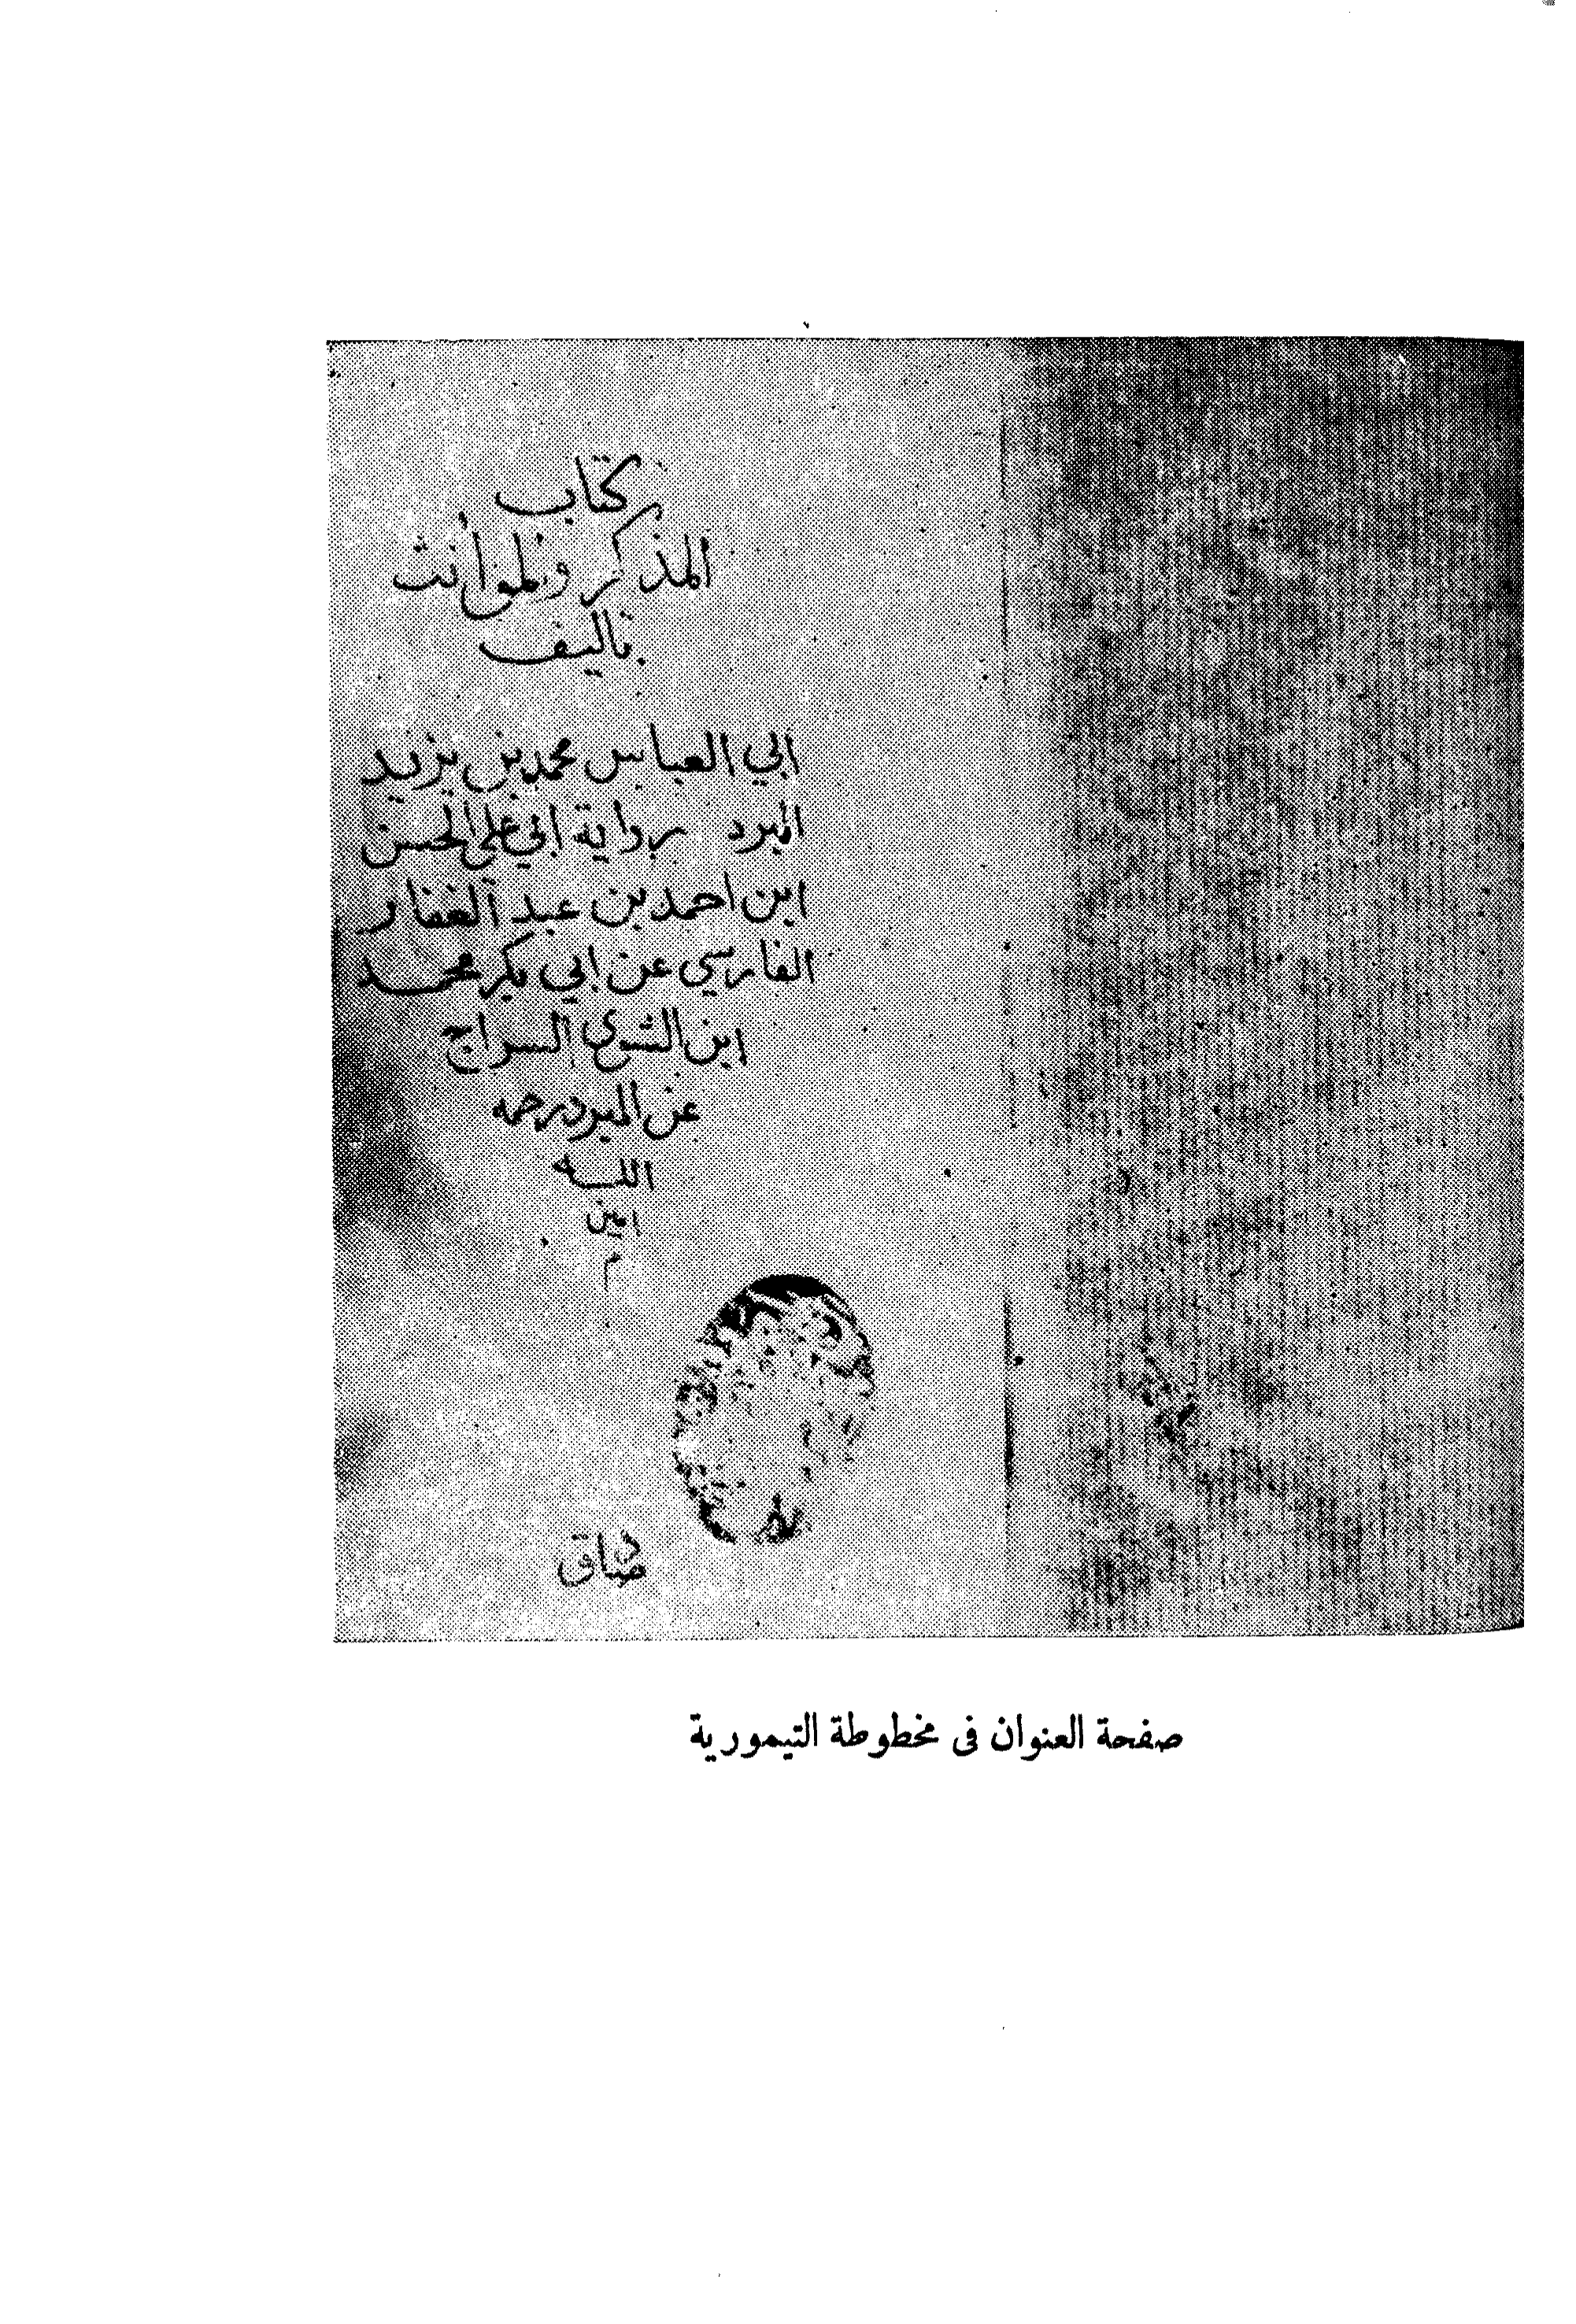 كتاب
المذكر والموأنث
تاليف
ابي العباس محمد بن يزيد
المبرد رواية ابي علي الحسن
ابن احمد بن عبد الغفار
الفارسي عن ابي بكر محمد
ابن السري السراج
عن المبرد رحمه
الله
امين
م
صفحة العنوان فى مخطوطة التيمورية